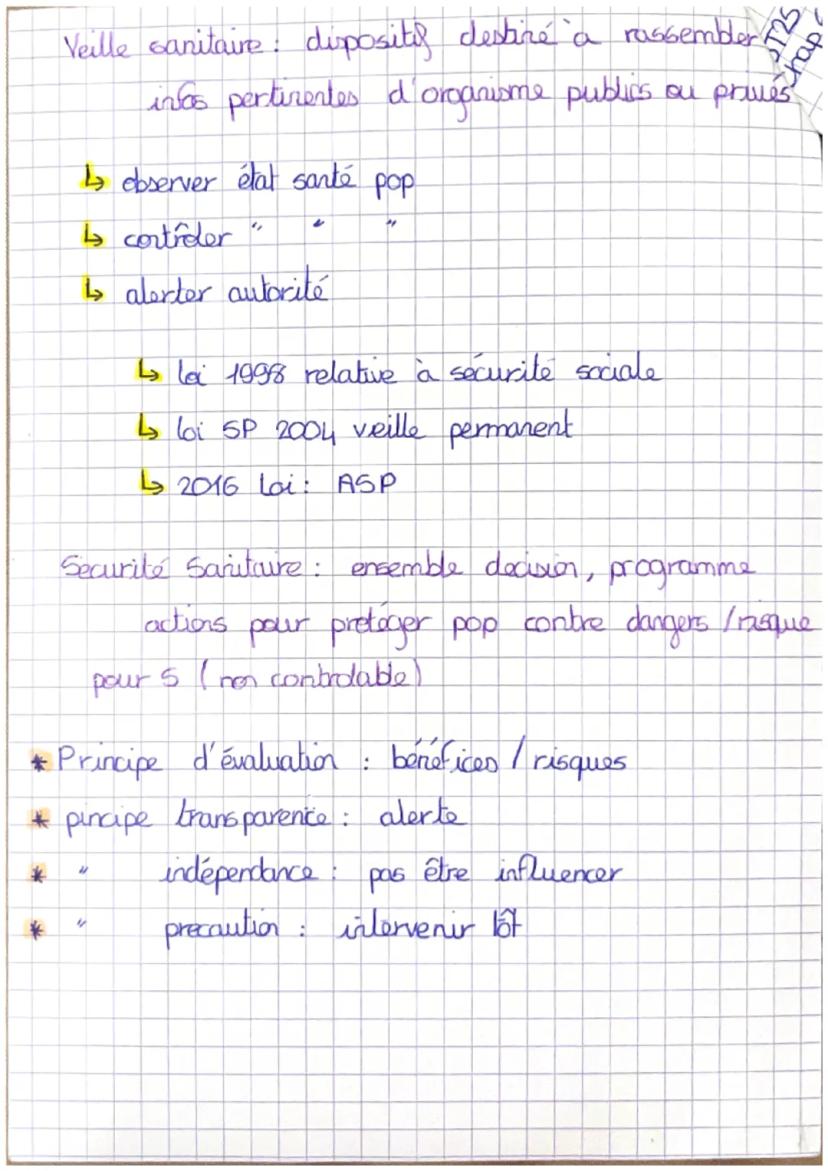 Veille sanitaire : dispositif destiné à rassembler
infos pertinentes d'organisme publics ou privés
ST2S
chap
↳ observer état santé pop
↳ contrôler " " "
↳ alerter autorité
↳ loi 1998 relative à sécurité sociale
↳ loi SP 2004 veille permanent
↳ 2016 loi : ASP
Securité Sanitaire : ensemble decision, programme
actions pour protéger pop contre dangers / risque
pour S (non controlable)
* Principe d'évaluation : bénéfices / risques
* pincipe transparence : alerte
* " indépendance : pas être influencer
* " precaution : intervenir tôt